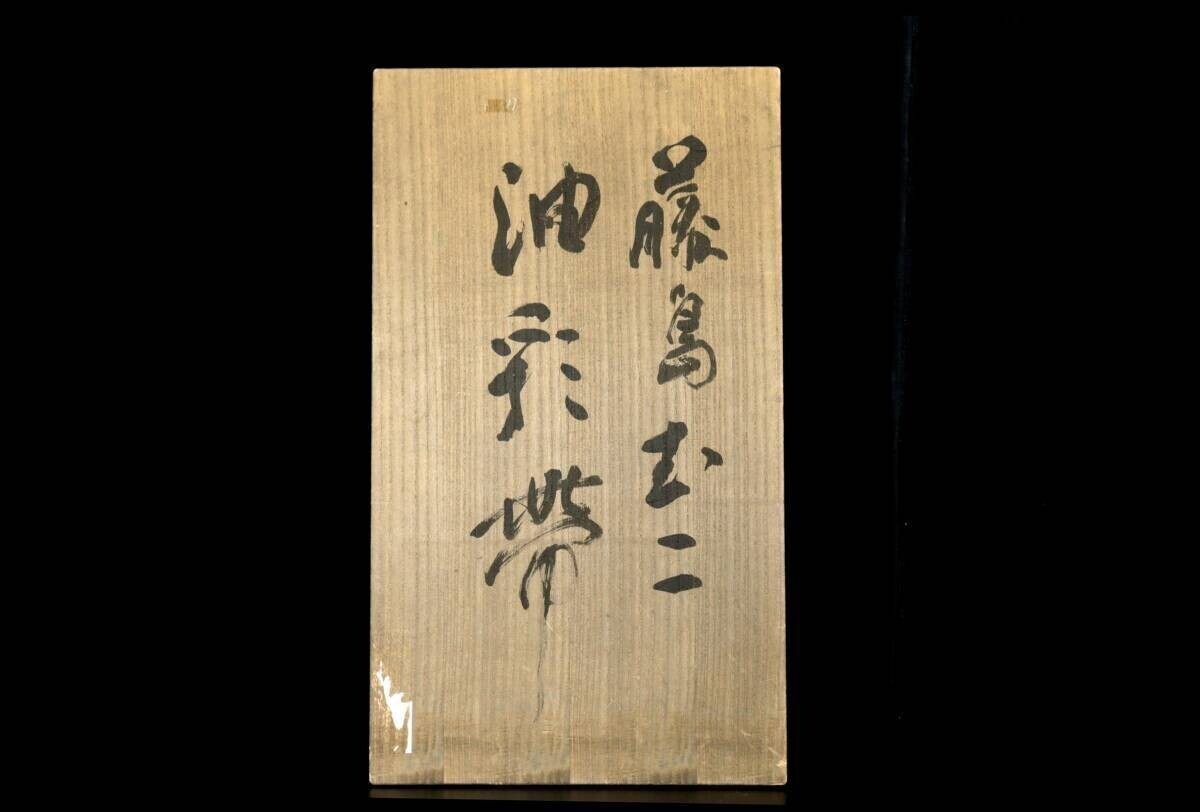 藤島武二
油彩帯